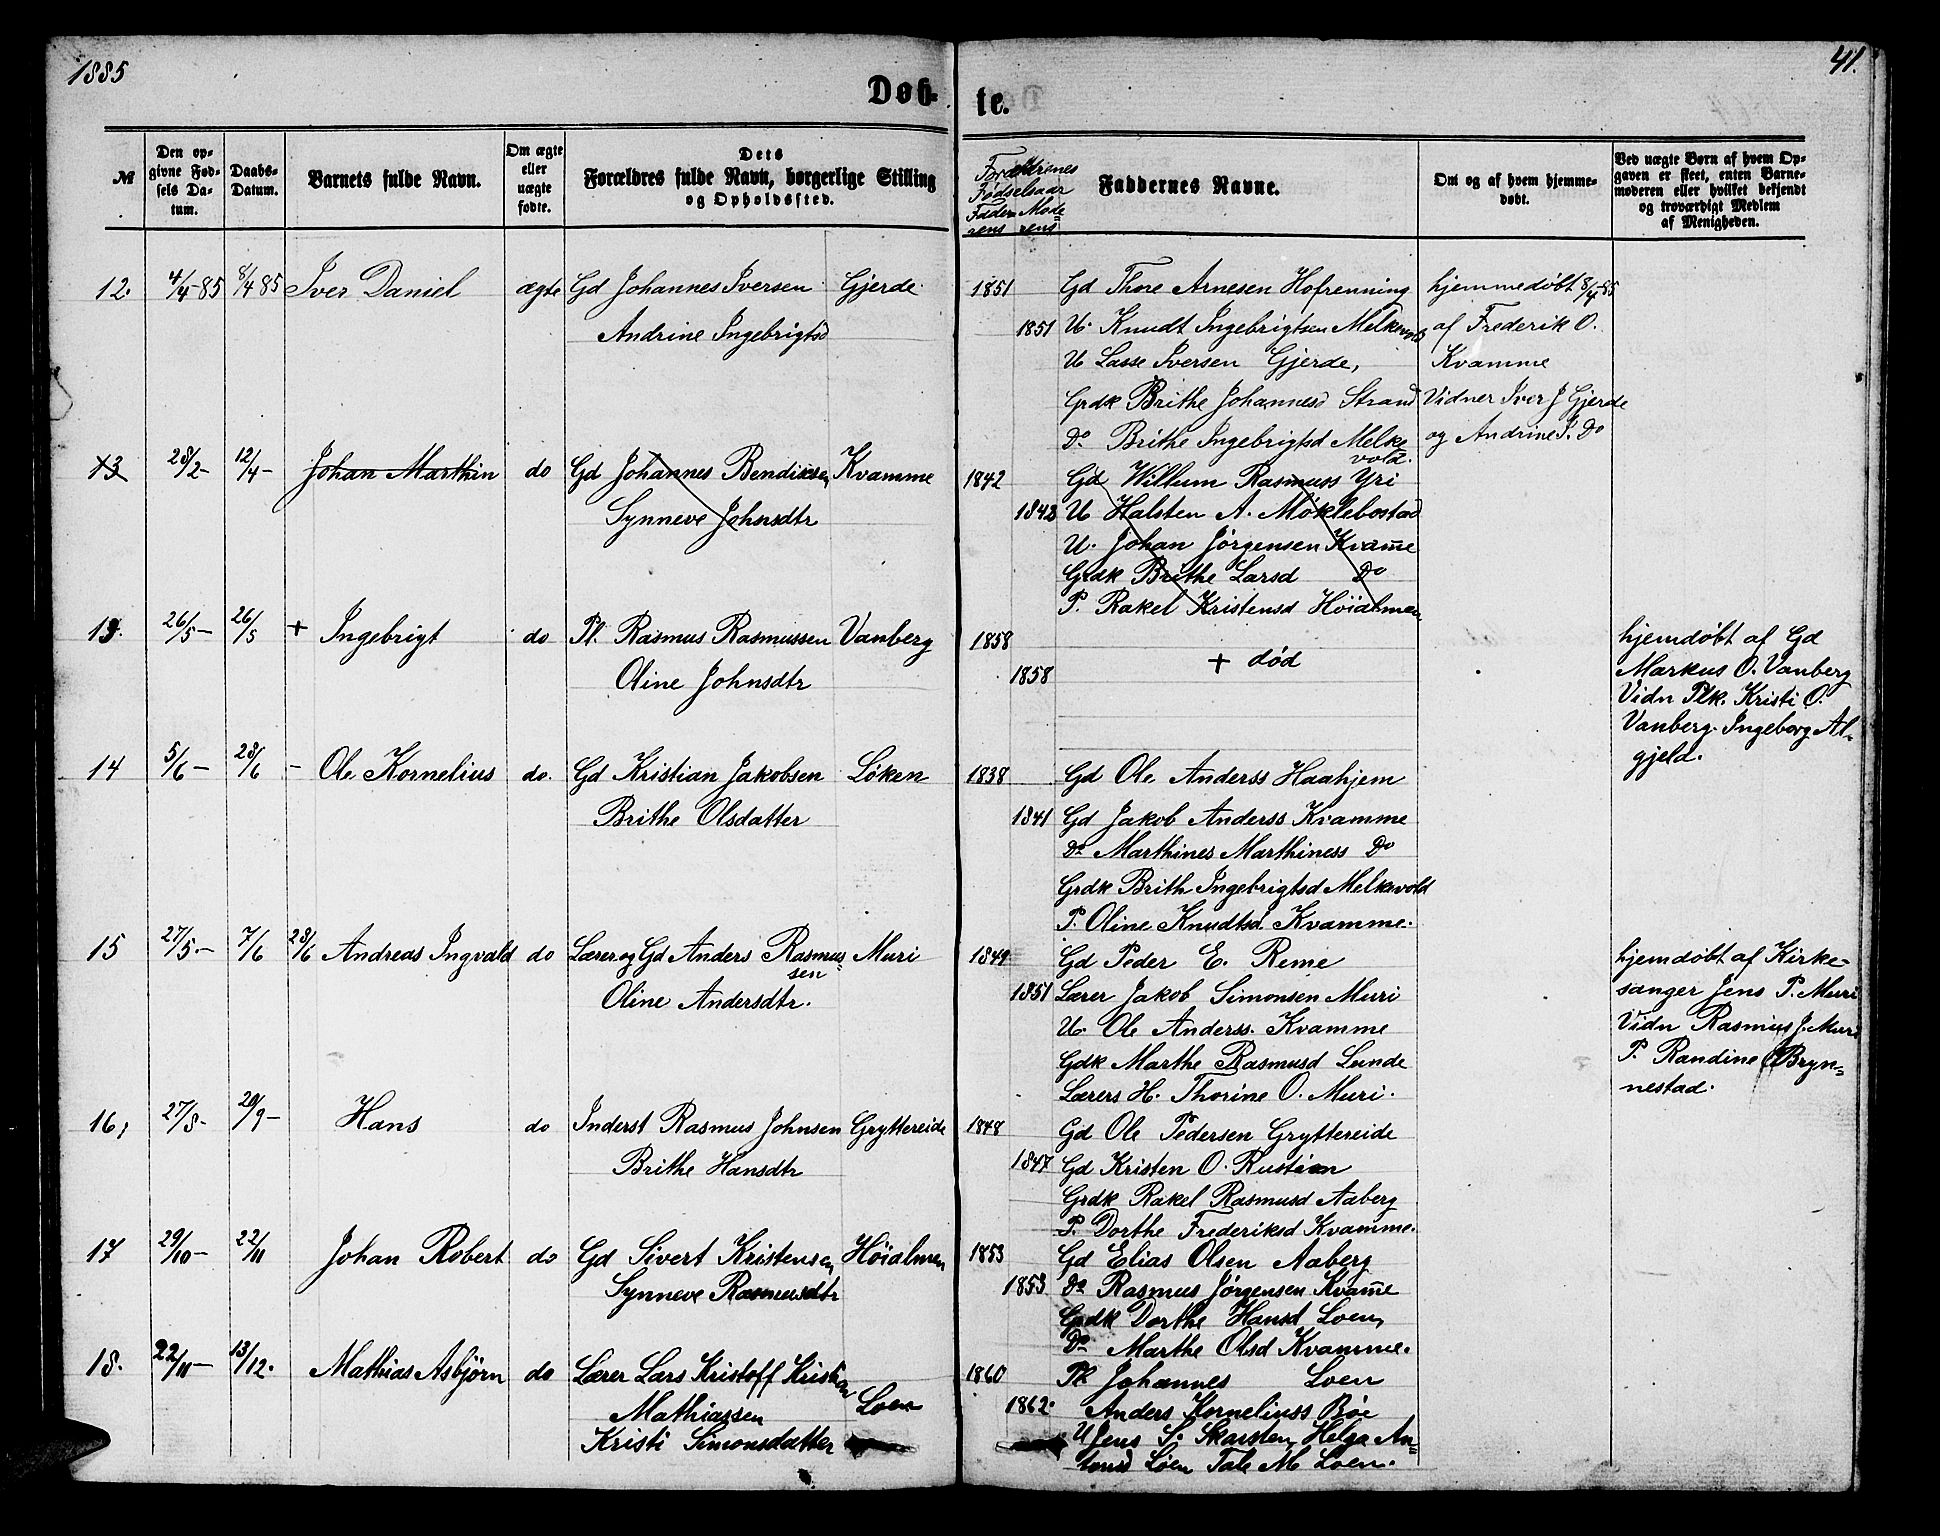 1885
41.
Døb-
te.
№
Den op-
givne Fød-
sels Da-
tum.
Daabs-
Datum.
Barnets fulde Navn.
Om ægte
eller
uægte
fødte.
Dets
Forældres fulde Navn, borgerlige Stilling
og Opholdssted.
Forældrenes
Fødselsaar
Faderens Moderens
Faddernes Navne.
Om og af hvem hjemme-
døbt.
Ved uægte Børn af hvem Op-
gaven er skeet, enten Barne-
moderen eller hvilket bekjendt
og troværdigt Medlem
af Menigheden.
12. 4/4-85 8/4 85 Iver Daniel ægte Gd Johannes Iversen Gjerde
Andrine Ingebrigtsd
1851 Gd Thore Arnesen Hofrenning hjemmedøbt 8/4-85
1851 U. Knudt Ingebrigtsen Melkevold af Frederik O.
U Lasse Iversen Gjerde, Kvamme
Grdk Brithe Johannesd Strand Vidner Iver J Gjerde
Do. Brithe Ingebrigtsd Melke og Andrine I. Do
vold.
13 28/2- 12/4- Johan Marthin do Gd Johannes Bendiksen Kvamme
Synneve Johnsdtr
1842 Gd Willum Rasmuss Yri
1842 U Halsten A. Møklebostad
U. Johan Jørgensen Kvam̅e
Grdk Brithe Larsd Do
P. Rakel Kristensd Höialmen
13. 26/5- 26/5 + Ingebrigt do Pl. Rasmus Rasmussen Vanberg
Oline Johnsdtr
1858
1858 + død
hjemdøbt af Gd
Markus O. Vanberg
Vidn Plk. Kristi O.
Vanberg. Ingeborg Al-
gjeld.
14 5/6- 28/6 - Ole Kornelius do. Gd Kristian Jakobsen Løken
Brithe Olsdatter
1838 Gd Ole Anderss Haahjem
1841 Gd Jakob Anderss Kvamme
Do Marthines Marthiness Do
Grdk Brith Ingebrigtsd Melkevold
P. Oline Knudtsd Kvamme.
15 27/5.- 7/6 28/6 Andreas Ingvald do Lærer og Gd Anders Rasmus- Muri
sen
Oline Andersdtr.
1849 Gd Peder E. Reme
1851 Lærer Jakob Simonsen Muri
U. Ole Anderss. Kvamme
Gdk Marthe Rasmusd Lunde
Lærers H. Thorine O. Muri.
hjemdøbt af Kirke-
sanger Jens P. Muri
Vidn Rasmus J. Muri
P. Randine Bryn-
nestad.
16, 27/8. 20/9- Hans do Inderst Rasmus Johnsen Gryttereide
Brithe Hansdtr
1848 Gd Ole Pedersen Gryttereide
1847 Gd Kristen O. Rustøen
Grdk Rakel Rasmusd Aaberg
P. Dorthe Frederiksd Kvamme.
17 29/10- 22/11 Johan Robert do Gd Sivert Kristensen Höialmen
Synneve Rasmusdtr
1853 Gd Elias Olsen Aaberg
1853 Do Rasmus Jørgensen Kvam̅e
Grdk Dorthe Hansd Loen,
Do Marthe Olsd Kvamme.
18. 22/11- 13/12. Mathias Asbjørn do Lærer Lars Kristoff Kristian
Mathiassen Loen
Kristi Simonsdatter
1860 Pk Johannes Loen
1862. Anders Korneliuss Bøe
U Jens S. Skarsten, Helga An-
tonsd Loen Tale M Loen.